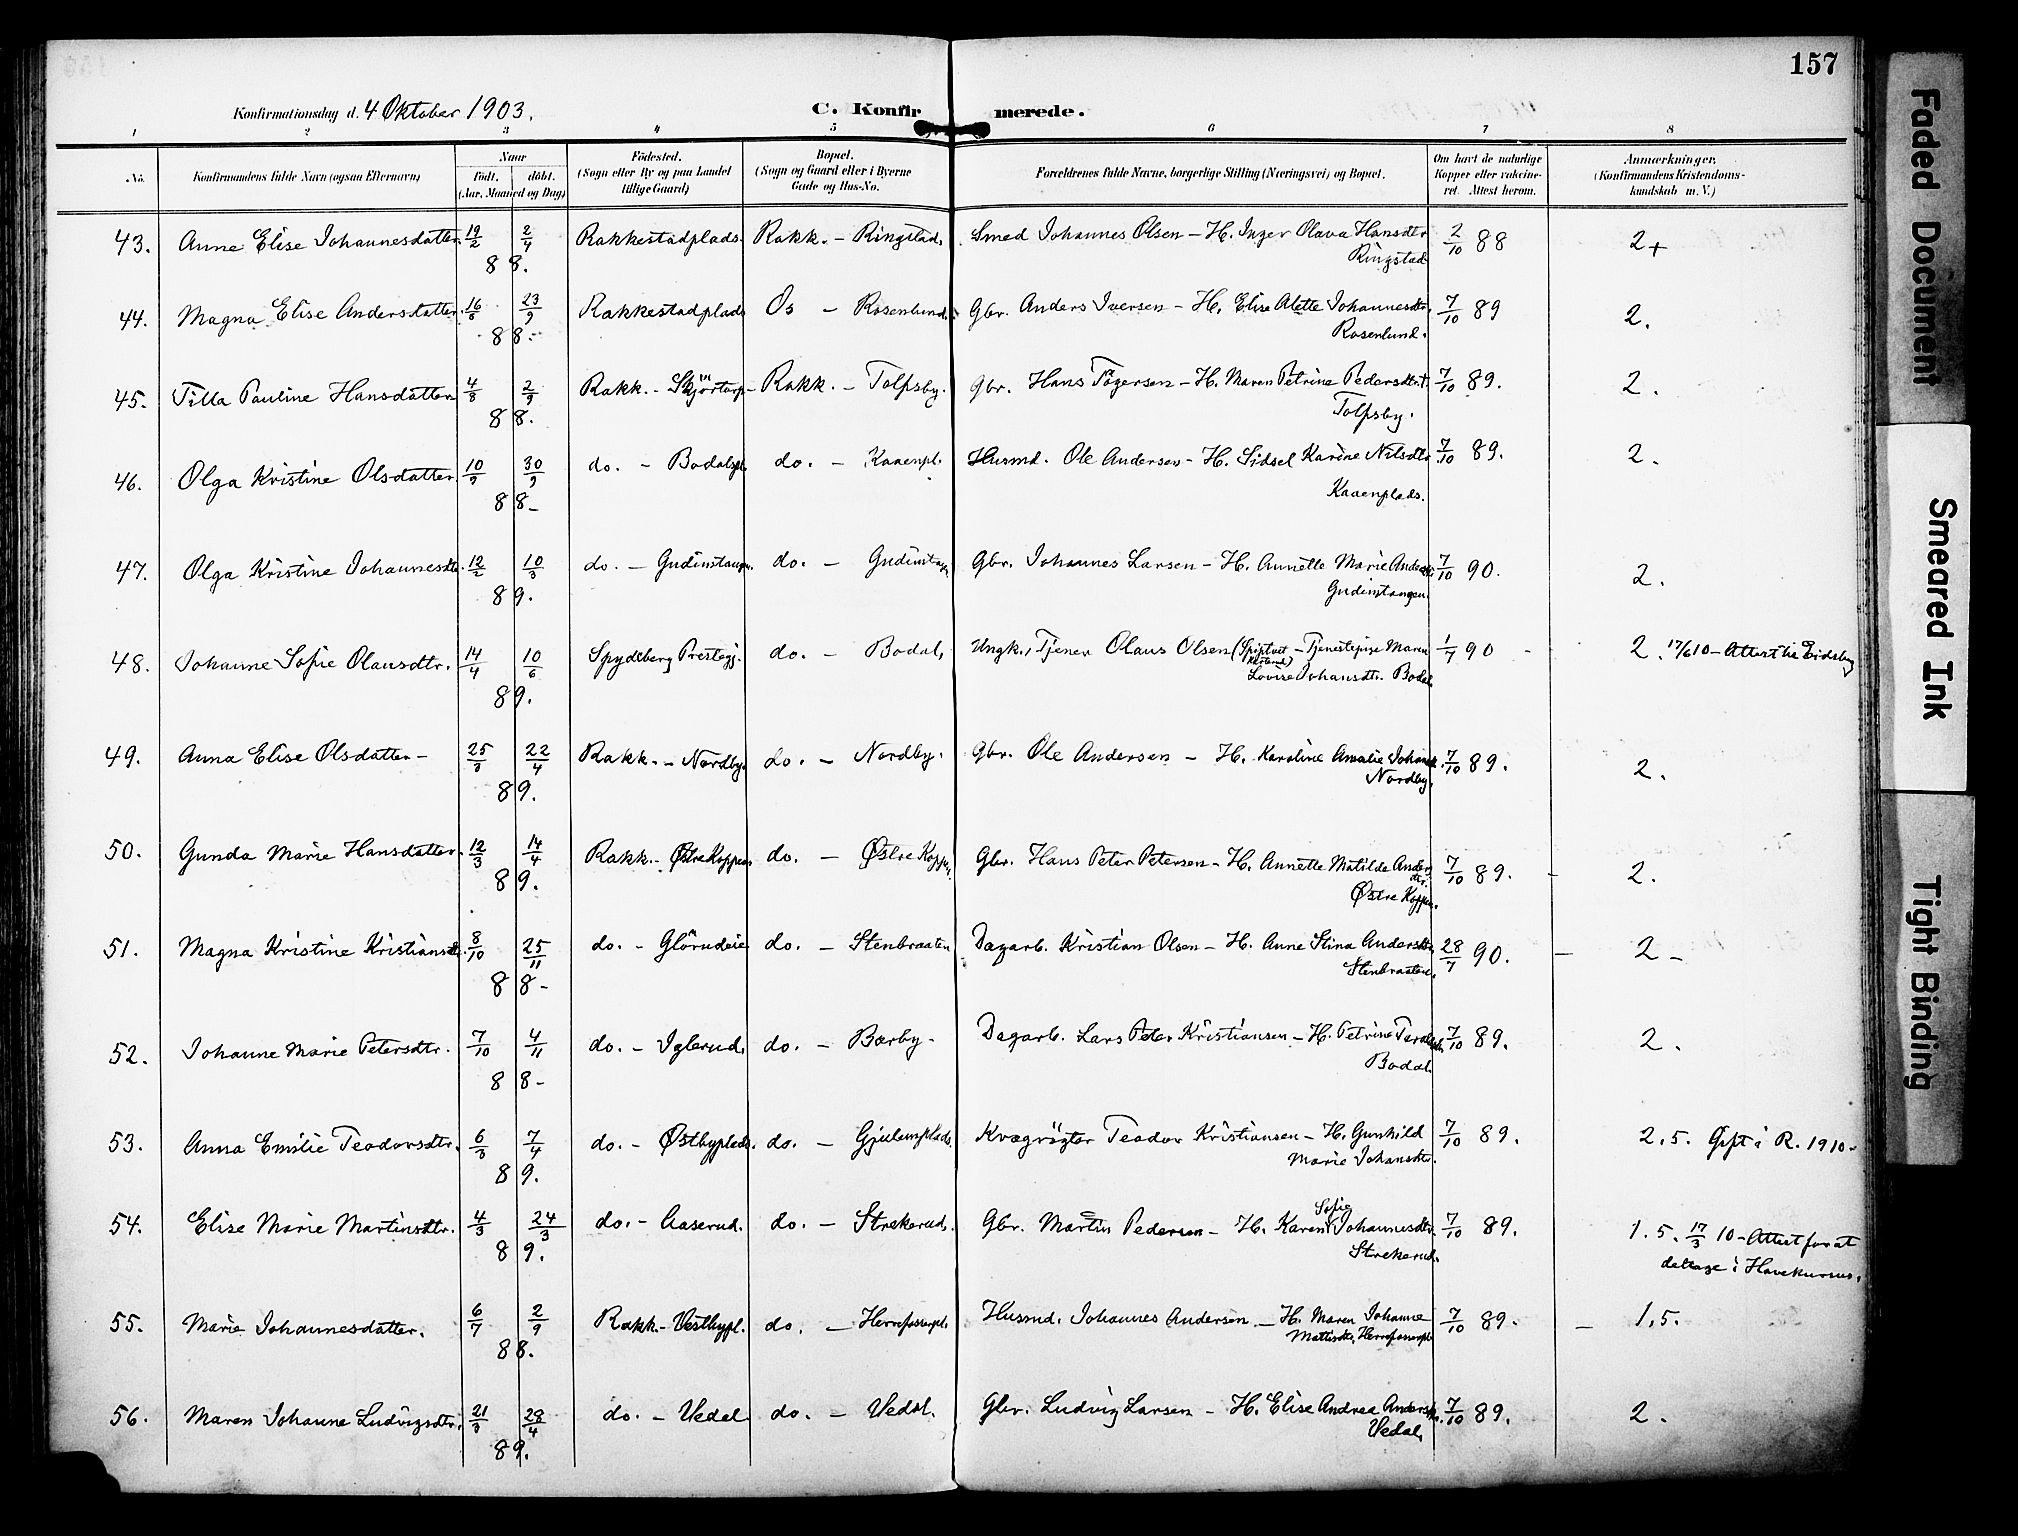 157
Konfirmationsdag d. 4 Oktober 1903.
C. Konfirmerede.
1 2 3 4 5 6 7 8
No. Konfirmandens fulde Navn (ogsaa Efternavn) Naar født. døbt. (Aar, Maaned og Dag) Fødested. (Sogn eller By og paa Landet tillige Gaard) Bopæl. (Sogn og Gaard eller i Byerne Gade og Hus-No.) Forældrenes fulde Navne, borgerlige Stilling (Næringsvei) og Bopæl. Om havt de naturlige Kopper eller vaccineret. Attest herom. Anmærkninger. (Konfirmandens Kristendomskundskab m. V.)
43. Anne Elise Johannesdatter 19/2 2/4 Rakkestadplads. Rakk. - Ringstad. Smed Johannes Olsen - H. Inger Olava Hansdtr 2/10 88 2+
88. Ringstad
44. Magna Elise Andersdatter. 16/8 23/9 Rakkestadplads Os - Rosenlund. Gbr. Anders Iversen - H. Elise Alette Johannesdtr. 7/10 89 2.
88. Rosenlund.
45. Tilla Pauline Hansdatter 4/8 2/9 Rakk. - Skjørtorp - Rakk. - Tolpsby. Gbr. Hans Tøgersen - H. Maren Petrine Pedersdtr. 7/10 89. 2.
88. Tolpsby.
46. Olga Kristine Olsdatter 10/9 30/9 do. - Bodalspl. do. - Kaaenpl. Husmd. Ole Andersen - H. Sidsel Karine Nilsdtr 7/10 89. 2.
88- Kaaenplads.
47. Olga Kristine Johannesdtr. 12/2 10/3 do. - Gudimtangen. do. - Gudimtangen Gbr. Johannes Larsen - H. Annette Marie Andersdtr. 7/10 90. 2.
89. Gudimtangen.
48. Johanne Sofie Olausdtr. 14/4 10/6 Spydeberg Prestegj. do. - Bodal, Ungk., Tjener Olaus Olsen - Tjenestepige Maren 1/7 90 - 2. 17/6 10 - Attest til Eidsberg
89. Lovise Johansdtr. Bodal
49. Anna Elise Olsdatter - 25/3 22/4 Rakk. - Nordby. do. - Nordby. Gbr. Ole Andersen - H. Karoline Amalie Johansdtr. 7/10 89. 2.
89. Nordby.
50. Gunda Marie Hansdatter. 12/3 14/4 Rakk. - Østre Koppen do. - Østre Koppen Gbr. Hans Peter Petersen - H. Annette Matilde Andersdtr. 7/10 89. - 2.
89. Østre Koppen.
51. Magna Kristine Kristiansdtr. 8/10 25/11 do. - Glørudeie do. - Stenbraaten Dagarb. Kristian Olsen - H. Anne Stina Andersdtr. 28/7 90. - 2-
88- Stenbraaten.
52. Johanne Marie Petersdtr. 7/10 4/11 do. - Iglerud. do. - Bærby - Dagarb. Lars Peter Kristiansen - H. Petrine 7/10 89. 2.
88- Bodal.
53. Anna Emilie Teodorsdtr. 6/3 7/4 do. - Østbyplads. do. - Gjulemplads. Kvægrøgter Teodor Kristiansen - H. Gunhild 7/10 89. 2.5. Gift i R. 1910-
89. Marie Johansdtr.
54. Elise Marie Martinsdtr. 4/3 24/3 do. - Aaserud. do. - Strekerud. Gbr. Martin Pedersen - H. Karen Sofie Johannesdtr. 7/10 89. 1.5. 17/3 10 - Attest for at
89. Strekerud. deltage i Havekursus.
55. Marie Johannesdatter. 6/7 2/9 Rakk. - Vestbypl. do. - Husmd. Johannes Andersen - H. Maren Johanne 7/10 89. - 1.5.
88.
56. Maren Johanne Ludvigsdtr. 21/3 28/4 do. - Vedal do. - Vedal. Gbr. Ludvig Larsen - H. Elise Andrea Andersdtr. 7/10 89. 2.
89. Vedal.
Faded Document
Smeared Ink
Tight Binding